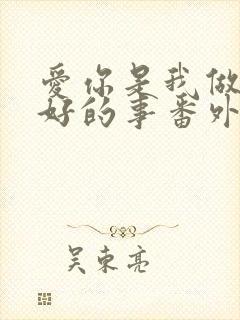 愛你是我做
好的事番外
吴東亮